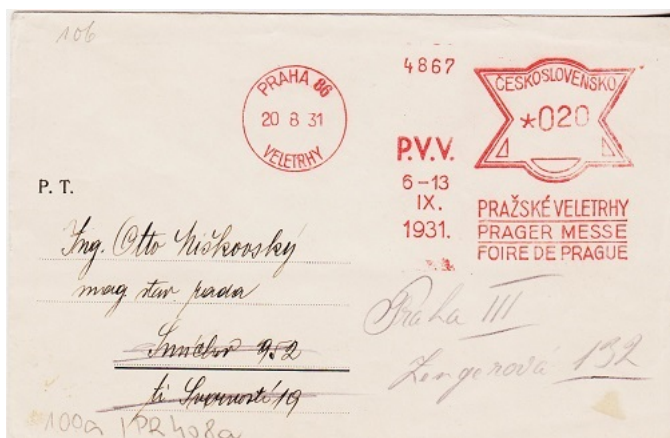 106
4867
PRAHA 86
20 8 31
VELETRHY
ČESKOSLOVENSKO
*020
P.V.V.
6-13
IX.
1931.
PRAŽSKÉ VELETRHY
PRAGER MESSE
FOIRE DE PRAGUE
P. T.
Ing. Otto Niškovský
mag stav. rada
Smíchov 952
Svornosti 19
Praha III
Zengerova 132
100a / PR408a